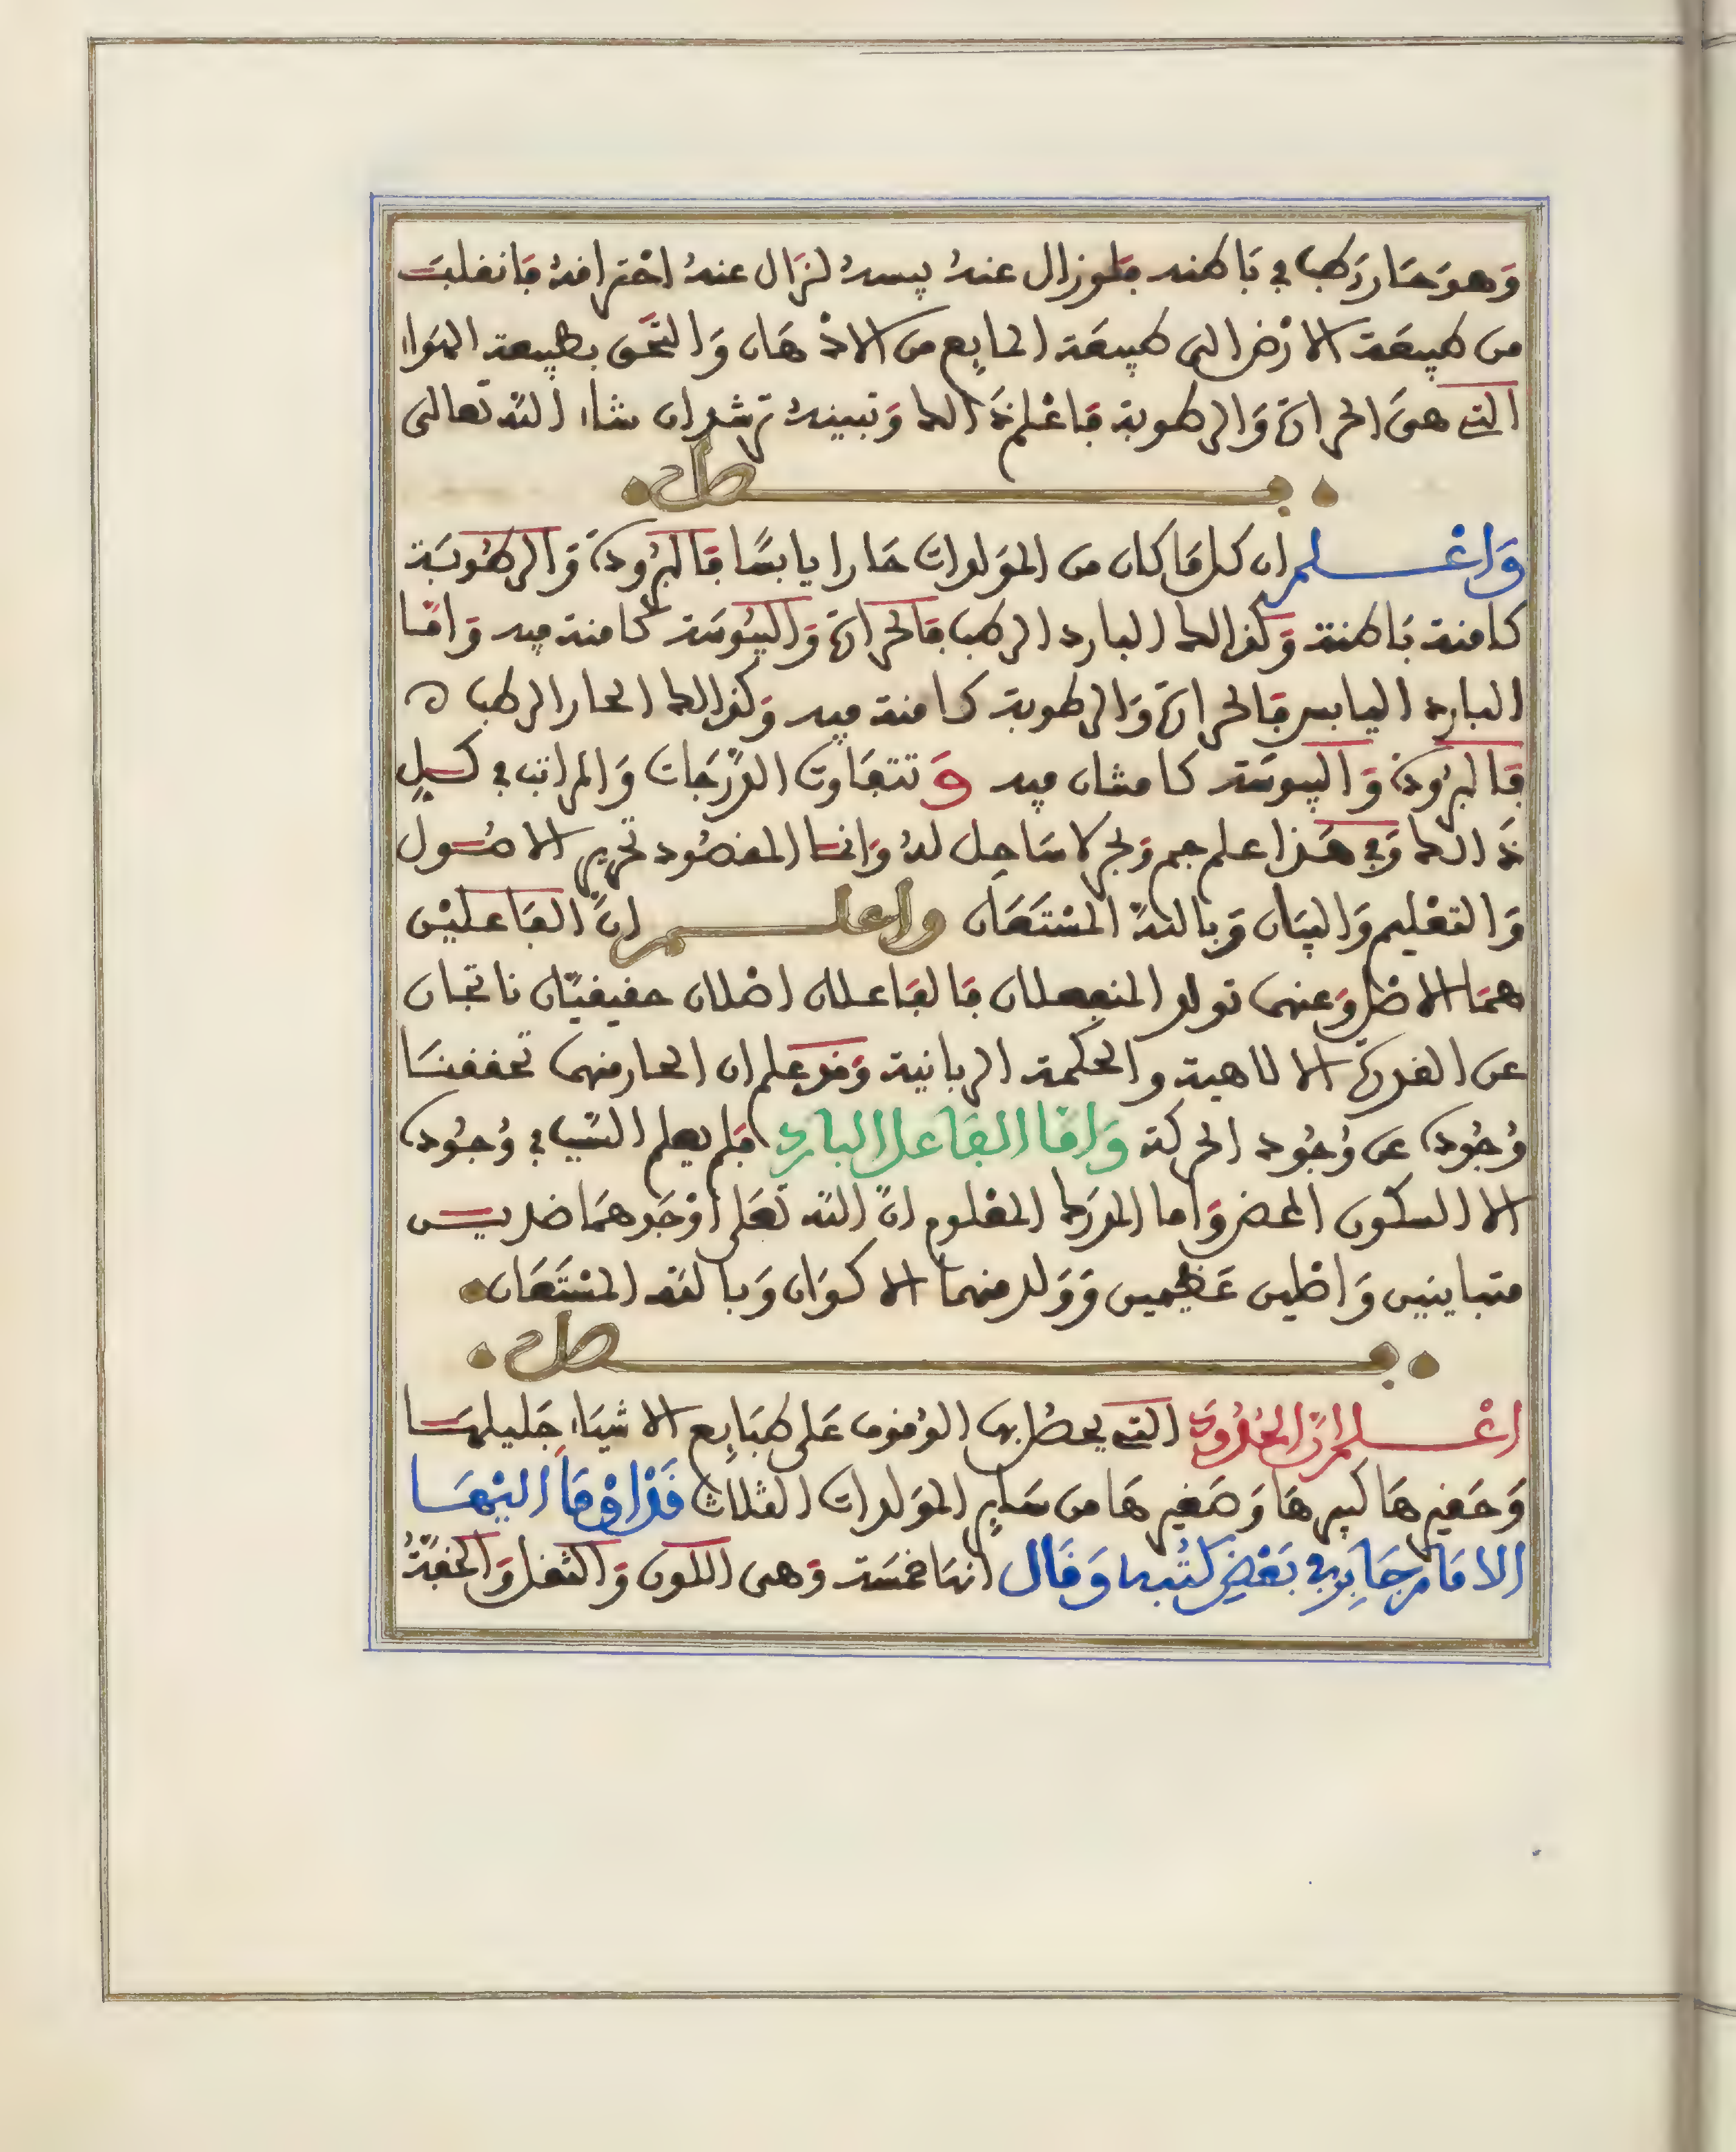 وَهوَ حَار رَطب في بَاطنه فلو زال عنهُ يبسهُ لزَال عنهُ احْتراقهُ فَانقلبَت
من طبيعَة الارْض الى طبيعَة المايع من الادْهَان وَالتحَق بطبيعة الهَواء
التي هىَ الحرارة وَالرطوبة فَاعْلم ذَالك وَتبينهُ ترشد ان شاء اللّه تَعالى
فصل
وَاعْلم ان كل مَا كان من المَولدات حَارا يابسًا فَالبرُودة وَالرطُوبَة
كامنة بَاطنة وَكذالك البارد الرطب فَالحرارة وَاليبُوسَة كامنة فيه وَامَّا
البارد اليابس فَالحرارة وَالرطوبة كامنة فيه وَكذالك الحار الرطب ه
فَالبرُودة وَاليبوسَة كامنتان فيه وَتتفَاوت الدّرَجَات وَالمراتب في كل
ذَالك وَفي هَذا علم جم وَبحر لا سَاحِل لهُ وَانما المقصُود تحرير الاصُول
وَالتعْليم وَالبيَان وَباللّه المسْتَعَان واعلم انَّ الفَاعليْن
همَا الاصْل وَعنهما تولد المنفعلان فَالفَاعلان اصْلان حقيقيّان ناتجان
عن القدرة الالاهية والحكمة الربانية وَقد علم ان الحار منهما تحققنَا
وُجُودهُ عن وُجُود الحركة وَامَّا الفَاعل البارد فَلم يعلم السّبب في وُجُوده
الا السكون المحض وَاما المدرَك المعْلوم انّ اللّه تعَلى اوْجَدهمَا ضديـن
متباينين وَاصْلين عَظيمين وَوَلد منهما الاكوَان وَباللّه المسْتَعَان
فصل
اعْلم انّ الحُدُودَ التي يحصُل بها الوُقوف عَلى طبَايع الاشيَاء جَليلهَا
وَحَقيرهَا كبيرهَا وَصَغيرهَا من سَاير المَولدات الثلاث قَدْ اوْمَأ اليْهَا
الامَام جَابر في بَعْض كتُبه وَقَال انها خمسَة وَهى اللون وَالثقل وَالخفّةُ